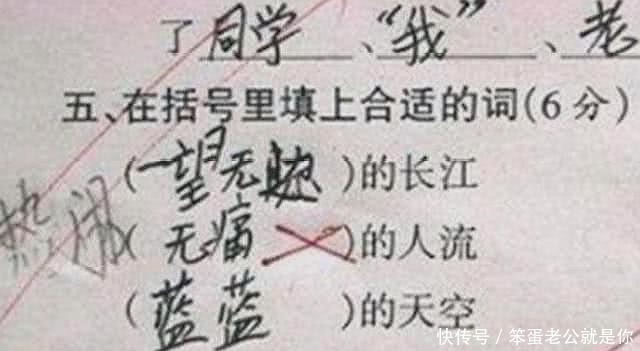 了同学、“我”、老
五、在括号里填上合适的词(6分)
(一望无际)的长江
热闹(无痛)的人流
(蓝蓝)的天空
快传号/笨蛋老公就是你